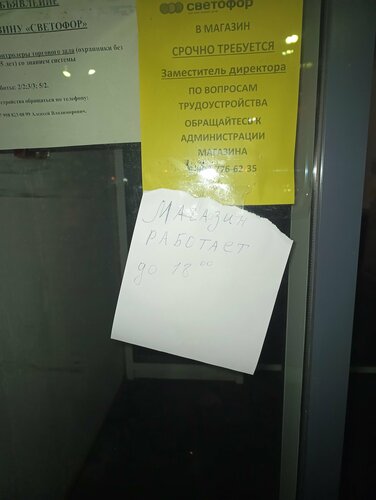 ОБЪЯВЛЕНИЕ
«СВЕТОФОР»
контролеры торгового зала (охранники без
лет) со знанием системы
2/2; 3/3; 5/2.
обращаться по телефону:
Алексей Владимирович.
светофор
В МАГАЗИН
СРОЧНО ТРЕБУЕТСЯ
Заместитель директора
ПО ВОПРОСАМ
ТРУДОУСТРОЙСТВА
ОБРАЩАЙТЕСЬ К
АДМИНИСТРАЦИИ
МАГАЗИНА
776-62-35
МАГАЗИН
РАБОТАЕТ
до 18 00